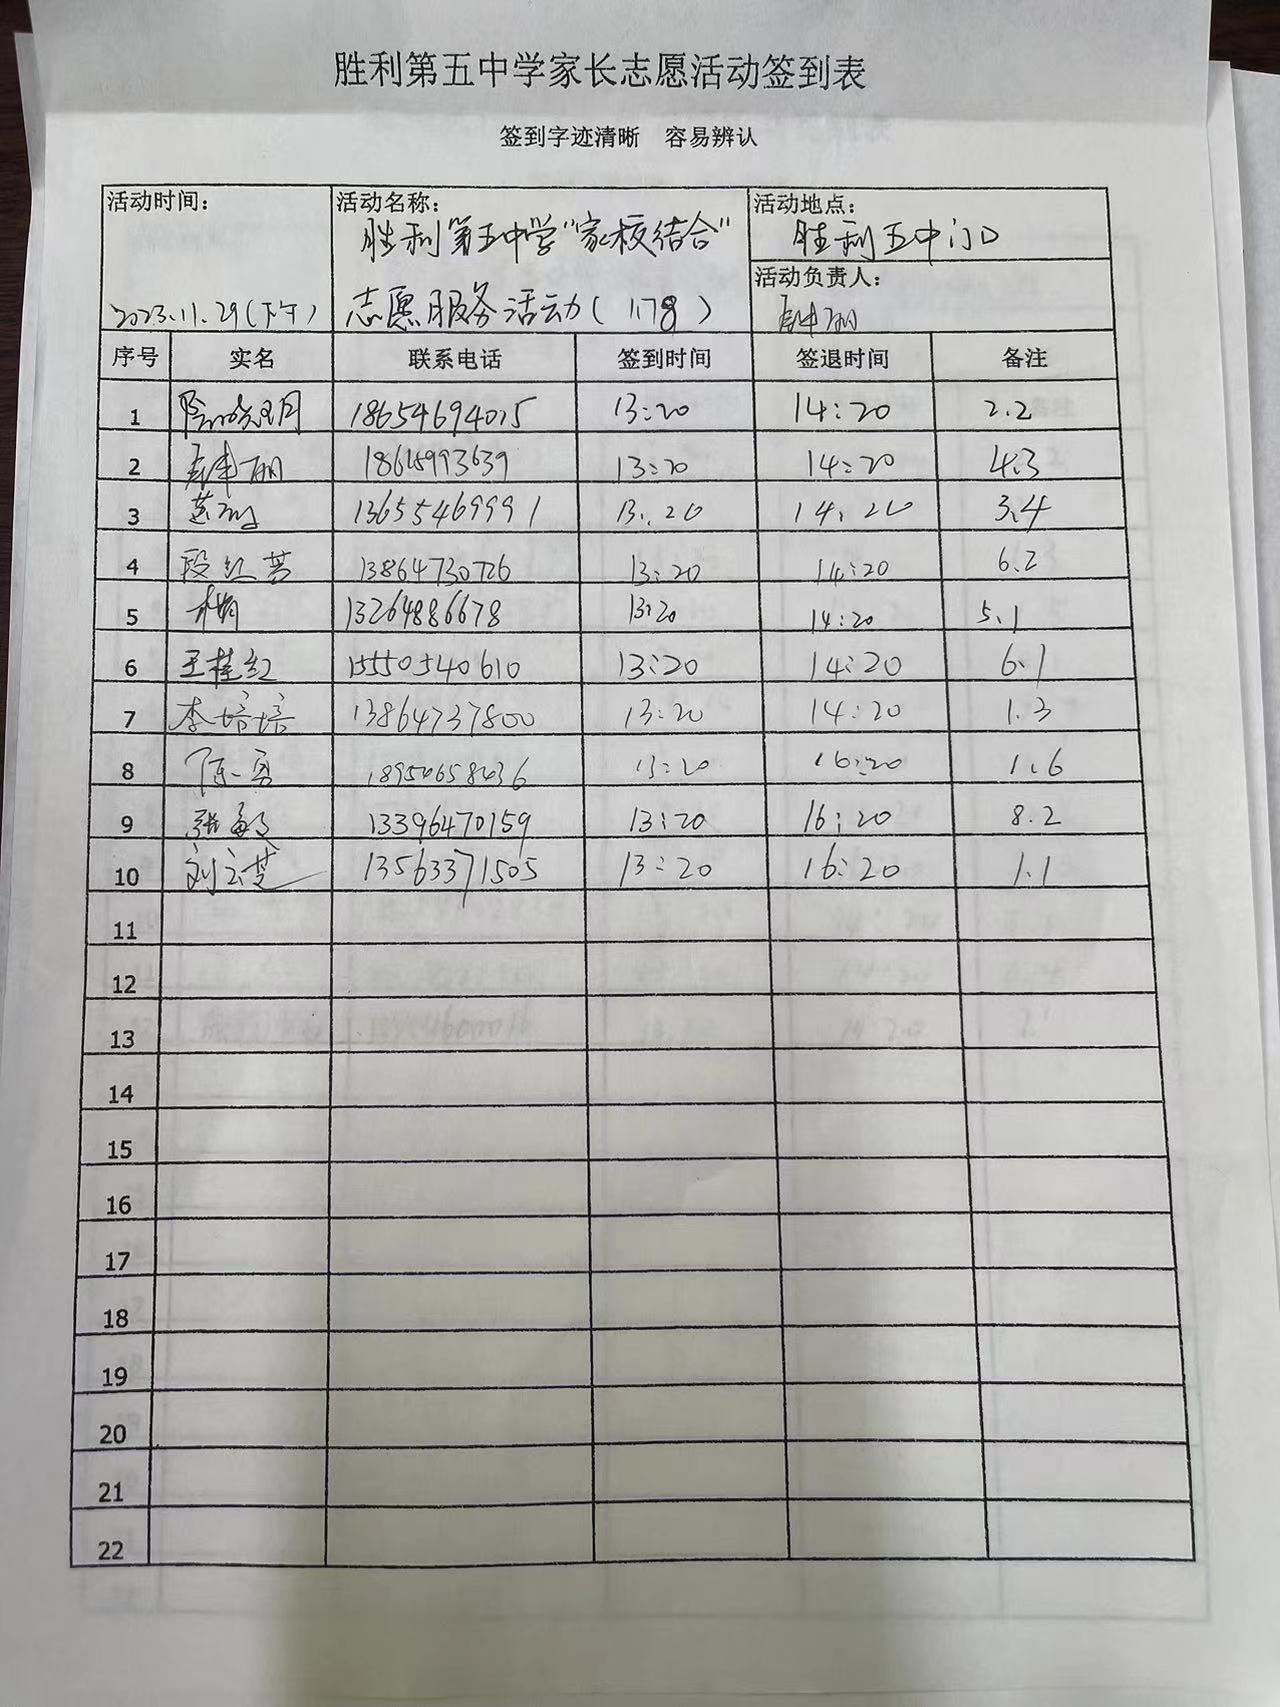 胜利第五中学家长志愿活动签到表
签到字迹清晰 容易辨认
活动时间: 2023.11.29(下午)
活动名称: 胜利第五中学“家校结合”
志愿服务活动( 1178 )
活动地点: 胜利五中门口
活动负责人:
序号 实名 联系电话 签到时间 签退时间 备注
1 18654694015 13:20 14:20 2.2
2 13:20 14:20 4.3
3 13655469991 13:20 14:20 3.4
4 段红营 13864730726 13:20 14:20 6.2
5 13264886678 13:20 14:20 5.1
6 王桂红 15550540610 13:20 14:20 6.1
7 李培培 13864737800 13:20 14:20 1.3
8 18954658436 13:20 16:20 1.6
9 张敏 13396470159 13:20 16:20 8.2
10 刘云芝 13563371505 13:20 16:20 1.1
11
12
13
14
15
16
17
18
19
20
21
22